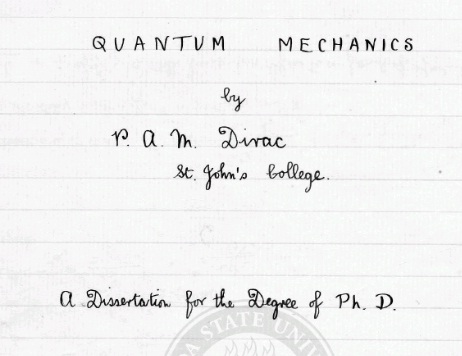 QUANTUM MECHANICS
by
P. A. M. Dirac
St. John's College.
A Dissertation for the Degree of Ph. D.
A STATE UNI